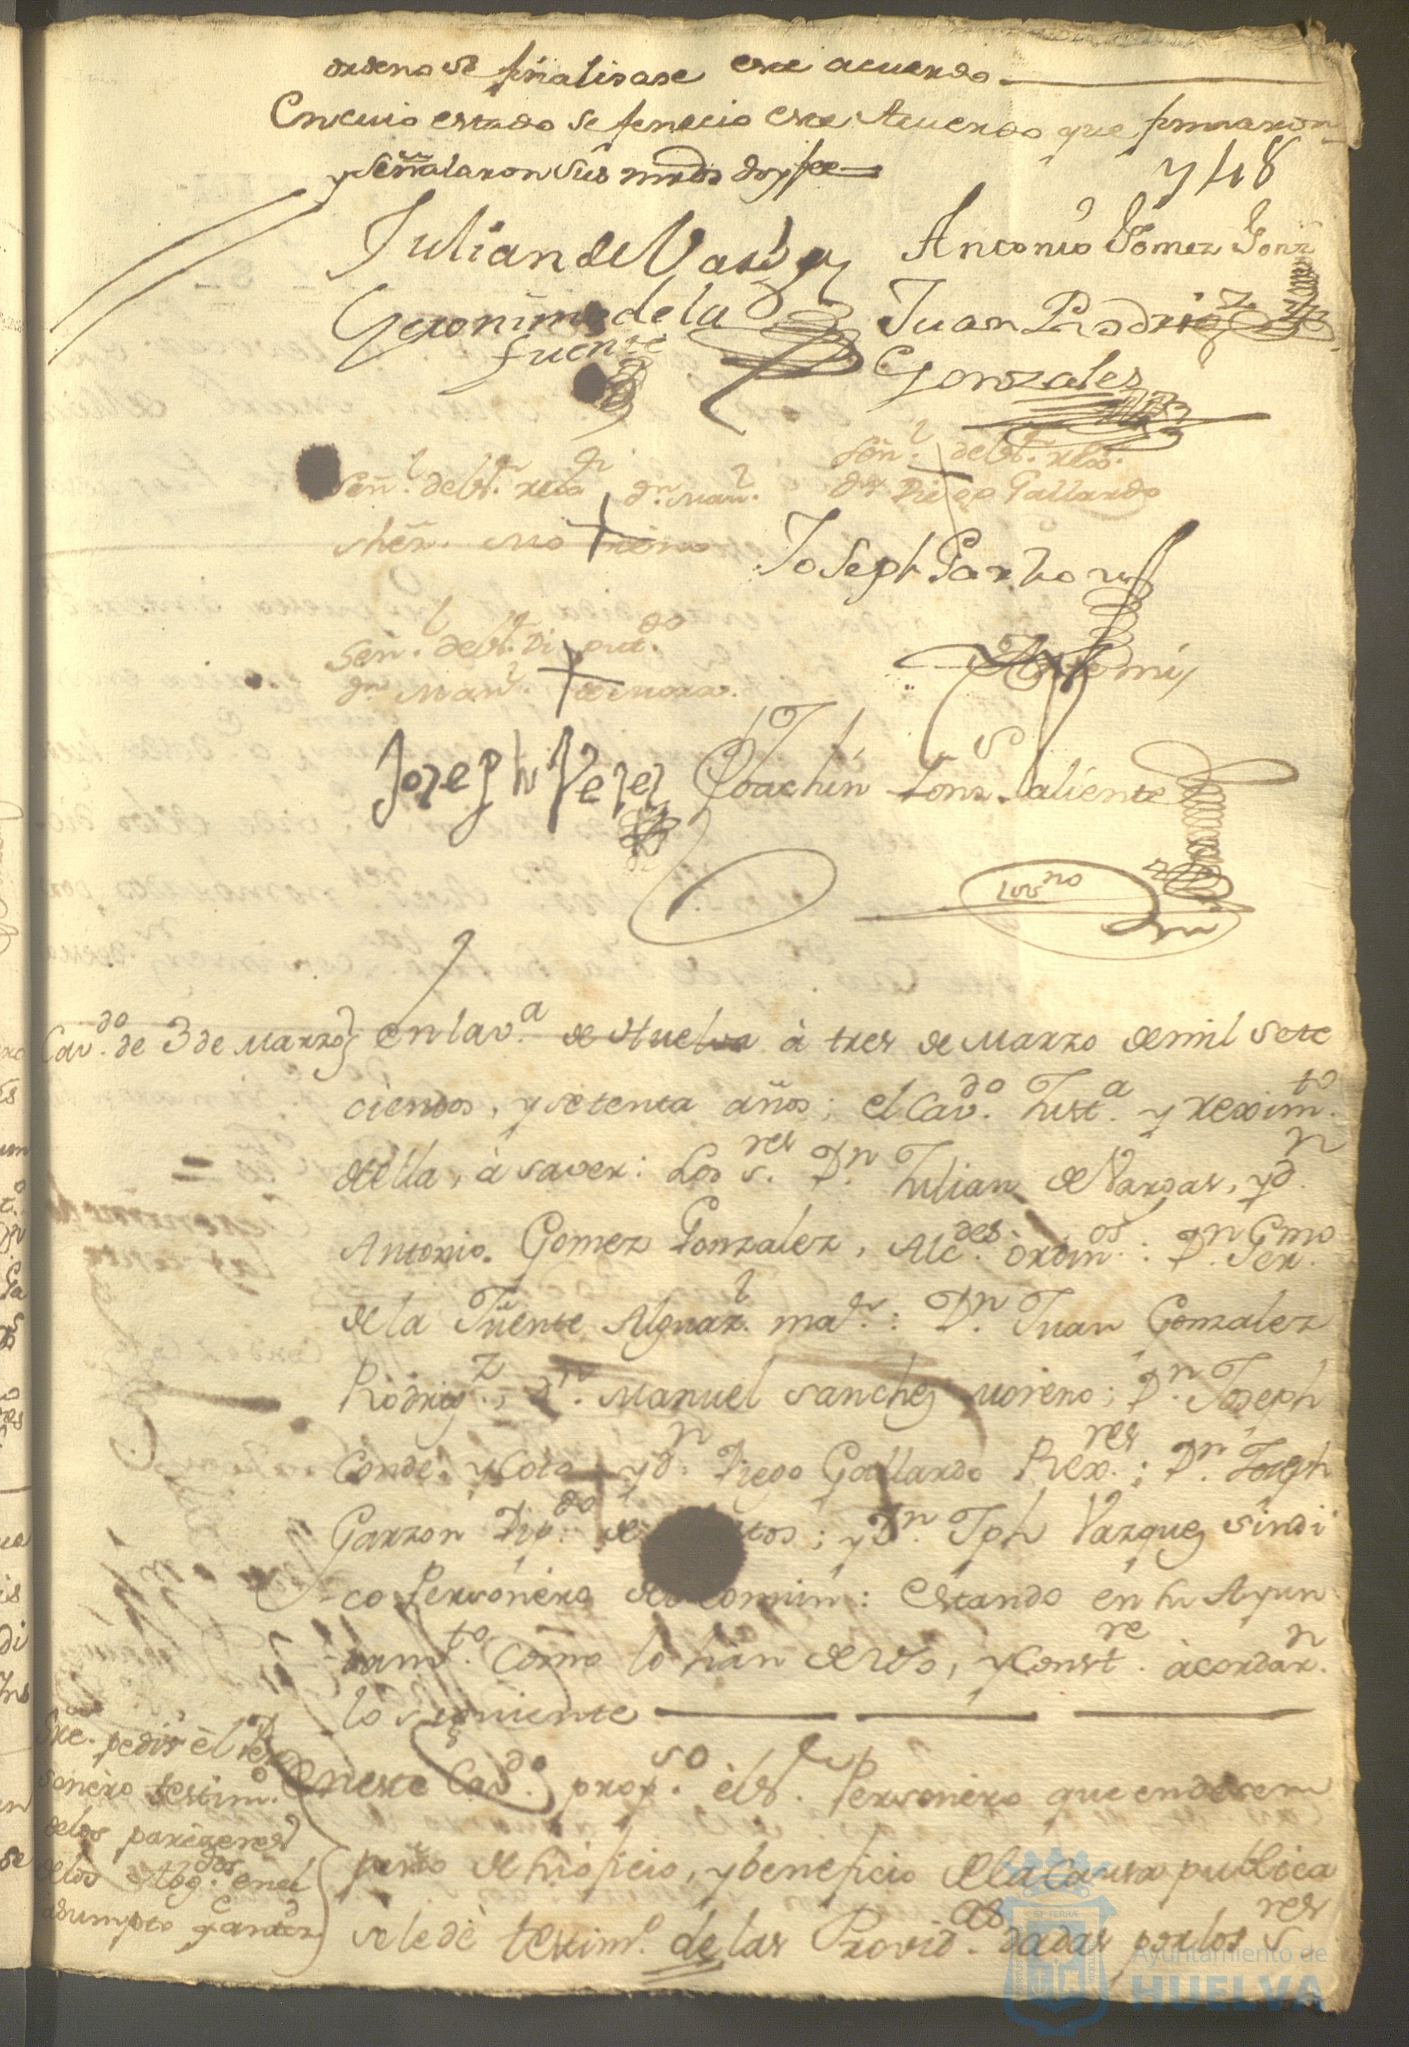 ordeno se finalisase este acuerdo
En cuio estado se fenecio este Acuerdo que firmaron
y señalaron sus mrds doy fee
Julian de Vargas
Antonio Gomez Gonz
Geronimo de la
fuente
Juan Rodrig.z
Gonzales
Señ.l del s.r rexo.r
d.n Man.l
Señ.l del s.r rexor.
d.n Diego Gallardo
Shez. Moreno
Joseph Garzon
Señ.l del s.r Diput.do
d.n Man.l de Mora.
Ante mi
Joseph Vezez
Joachin Gonz. Saliente
Cav.do de 3 de Marzo
en la v.a de Huelva à tres de Marzo de mil sete
cientos, y setenta años; el Cav.do Just.a y reximi.to
de ella, à saver: Los s.res D.n Julian de Vargas, y d.n
Antonio. Gomez Gonzalez, Alc.des ordin.os: D.n Ger.mo
de la Fuente Alguaz.l ma.r: D.n Juan Gonzalez
Rodrig.z, d.n Manuel Sanchez Moreno; D.n Joseph
Conde y Coto y d.n Diego Gallardo Rex.res; D.n Joseph
Garzon Dip.do de tos; y D.n Jph Vazquez sindi
co Personero del comun: estando en su Ayun
tam.to como lo han de uso, y const.re acordar.n
lo siguiente
Sre. pedir èl Per
sonèro testim.o
de los parezeres
de los Abog.dos en el
asumpto
En este Cav.do prop.so èl s.r Personèro que en desem
peño de su oficio, y beneficio de la Causa publica
se le dè testim.o de las Provid.as dadas por los s.res
Ayuntamiento de
HUELVA